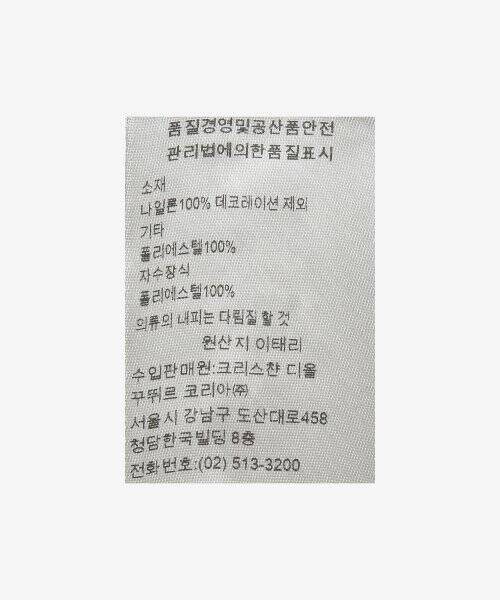 품질경영및공산품안전
관리법에의한품질표시
소재
나일론100% 데코레이션 제외
기타
폴리에스텔100%
자수장식
폴리에스텔100%
의류의 내피는 다림질 할 것
원산지 이태리
수입판매원:크리스챤 디올
꾸뛰르 코리아㈜
서울시 강남구 도산대로458
청담한국빌딩 8층
전화번호:(02) 513-3200